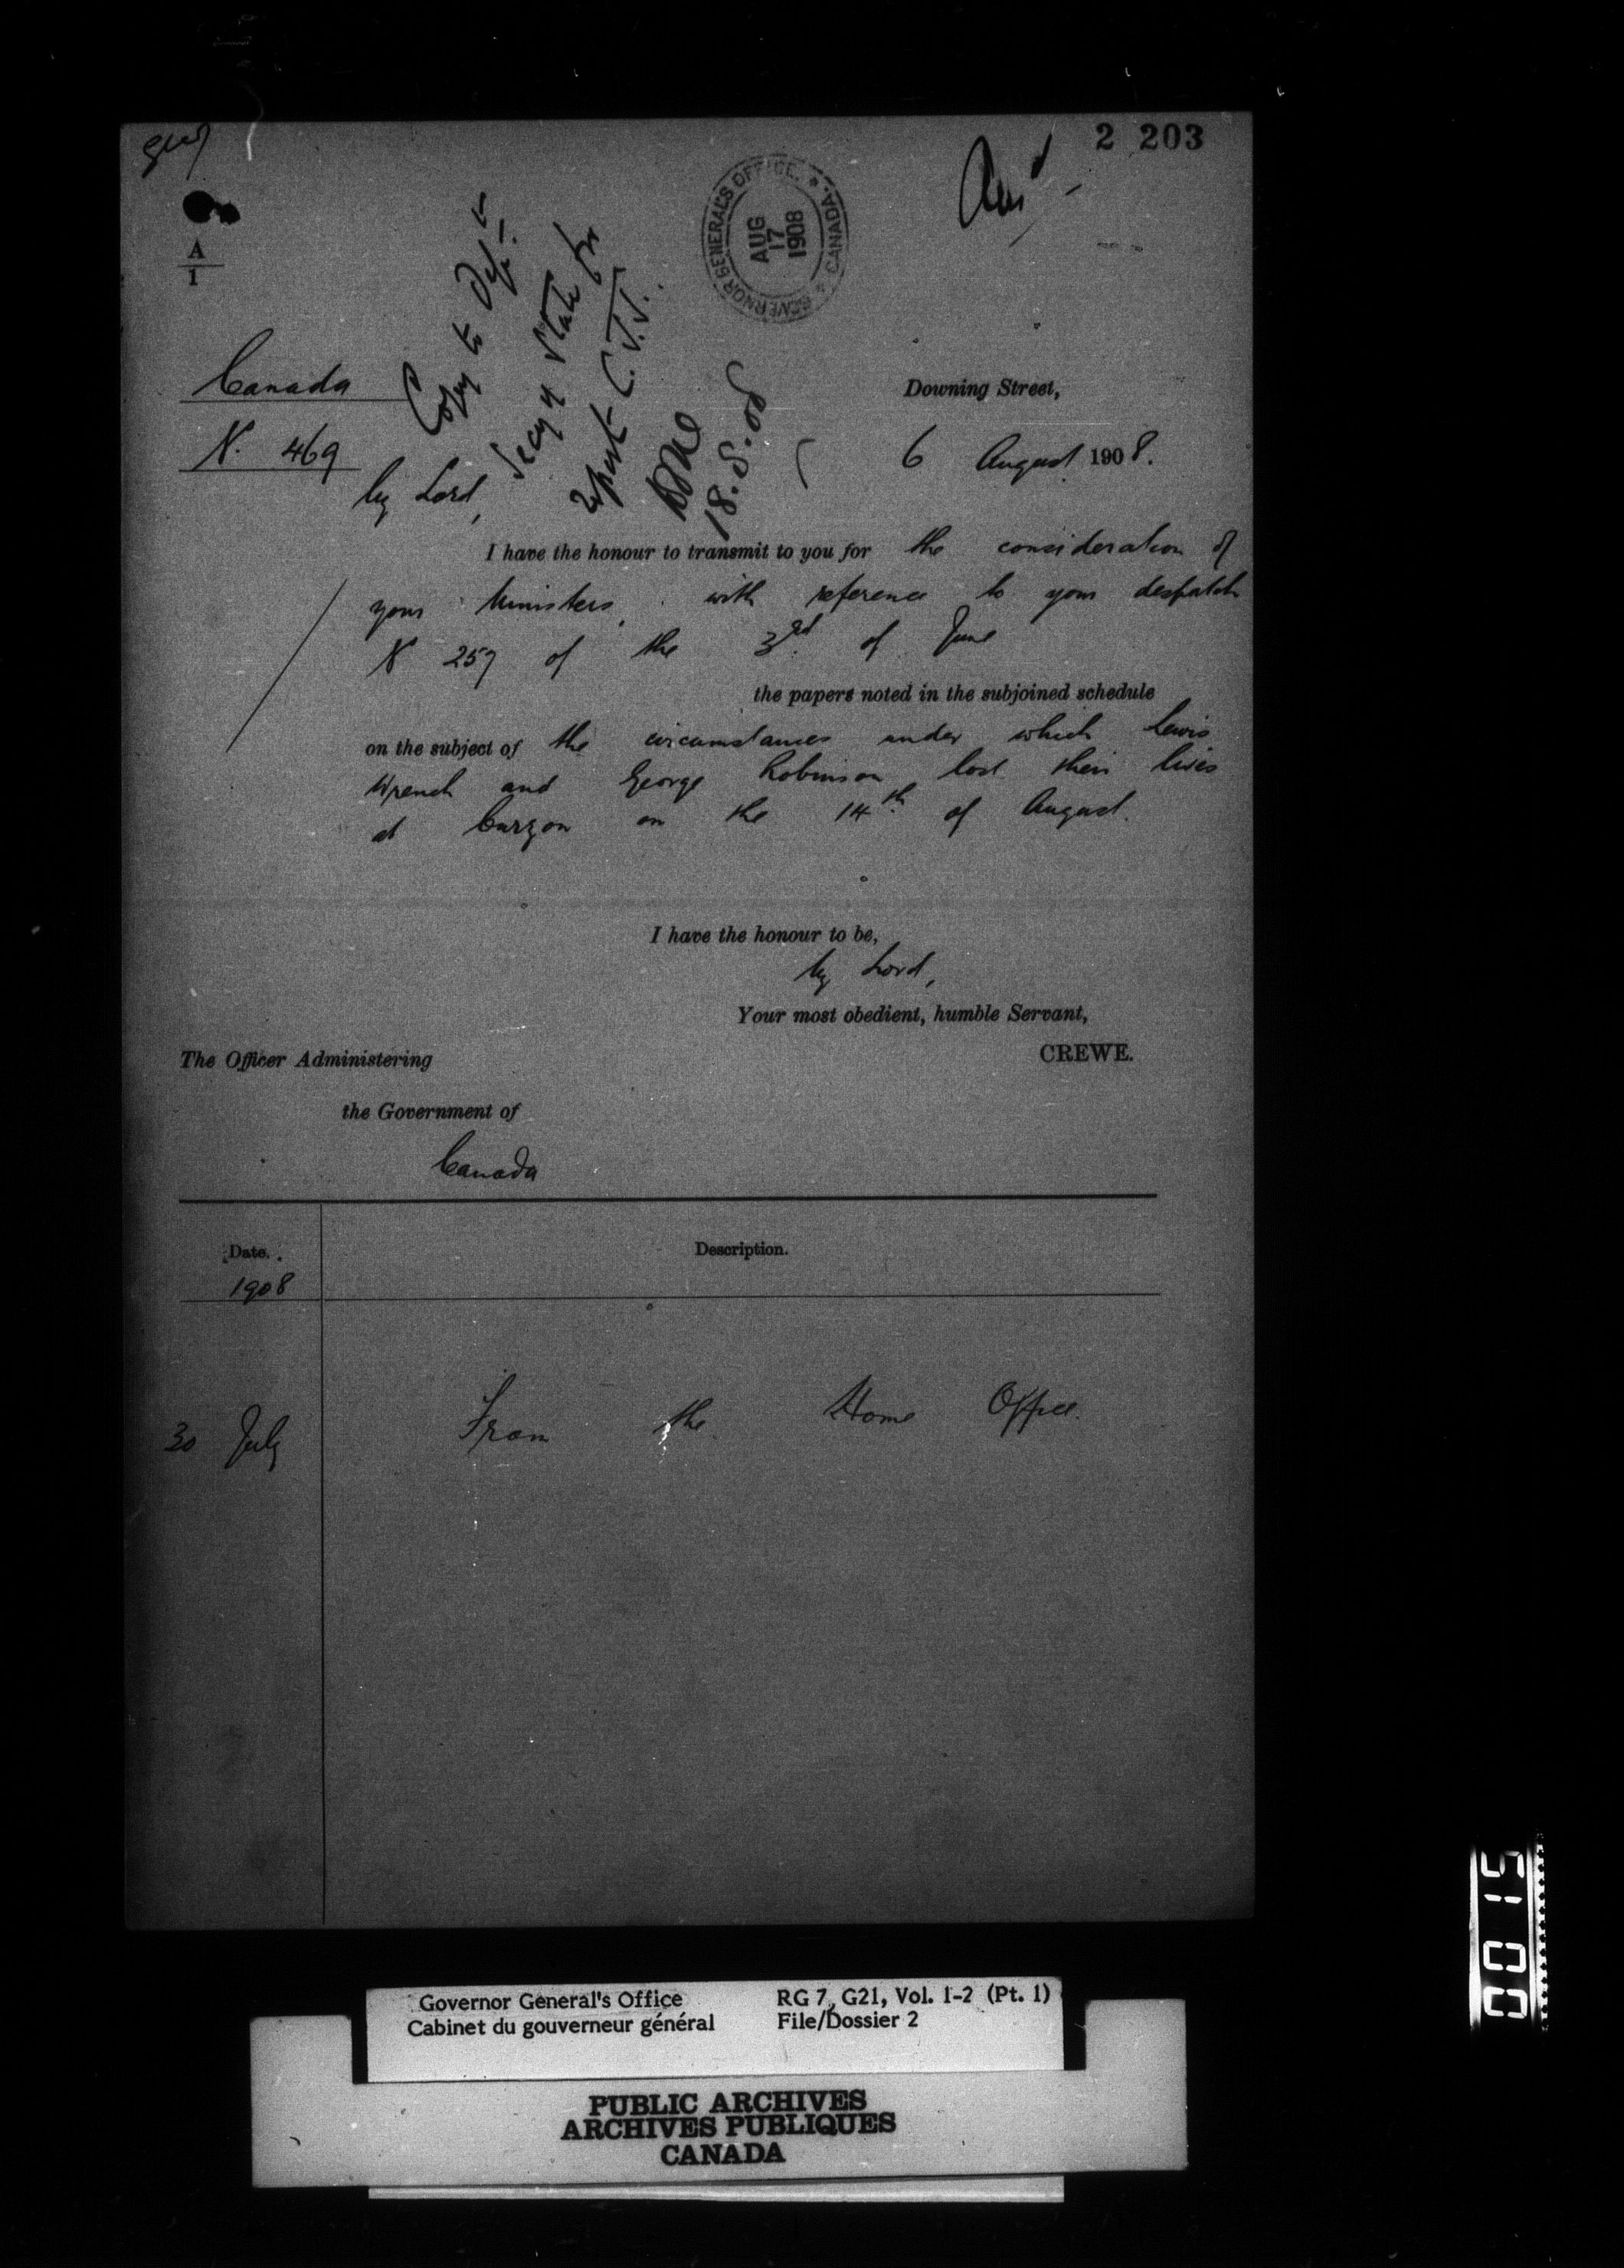 2 203
A
1
GOVERNOR GENERAL'S OFFICE. * CANADA. *
AUG
17
1908
Copy to Dept
Secy of State for
report C.J.J.
Done
18.8.08
Canada
N. 469
Downing Street,
6 August 1908.
My Lord,
I have the honour to transmit to you for the consideration of
your Ministers, with reference to your despatch
N 257 of the 3rd of June
the papers noted in the subjoined schedule
on the subject of the circumstances under which Lewis
Wrench and George Robinson lost their lives
at Curzon on the 14th of August.
I have the honour to be,
My Lord,
Your most obedient, humble Servant,
CREWE.
The Officer Administering
the Government of
Canada
Date. Description.
1908
30 July From the Home Office.
Governor General's Office RG 7, G21, Vol. 1-2 (Pt. 1)
Cabinet du gouverneur général File/Dossier 2
PUBLIC ARCHIVES
ARCHIVES PUBLIQUES
CANADA
0015